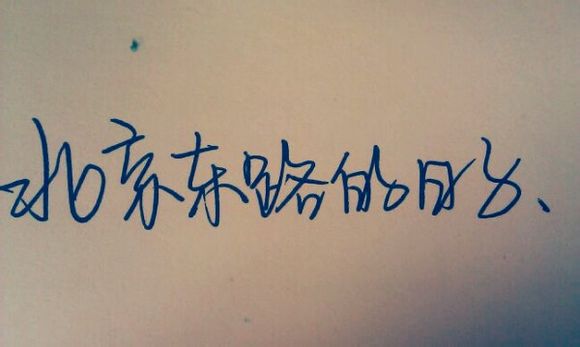 北京东路的日子、